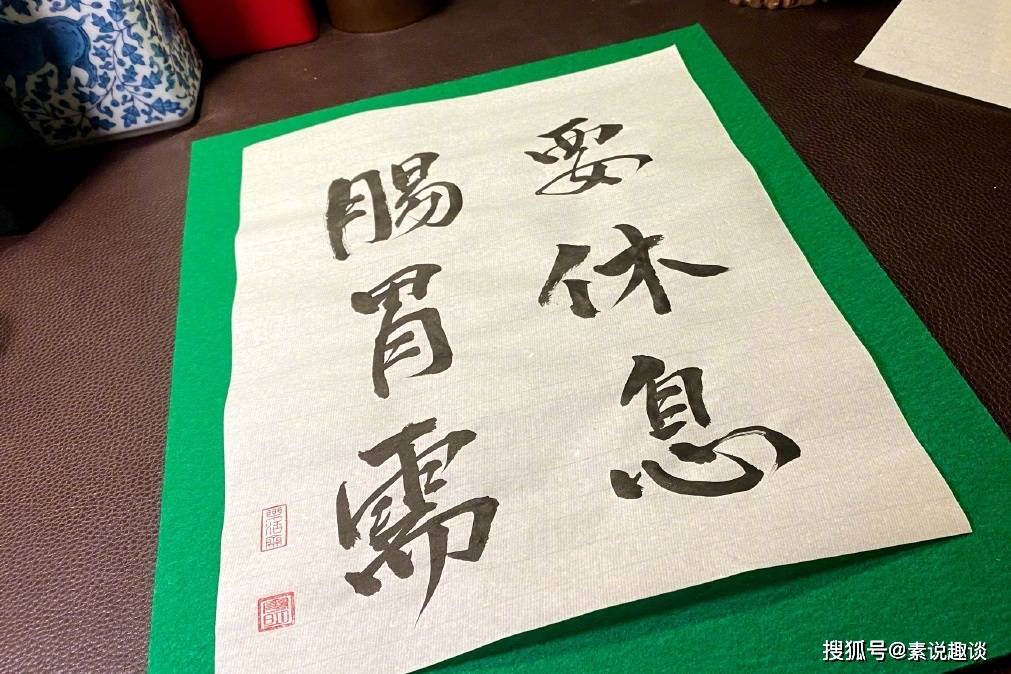 腸胃需
要休息
搜狐号@素说趣谈